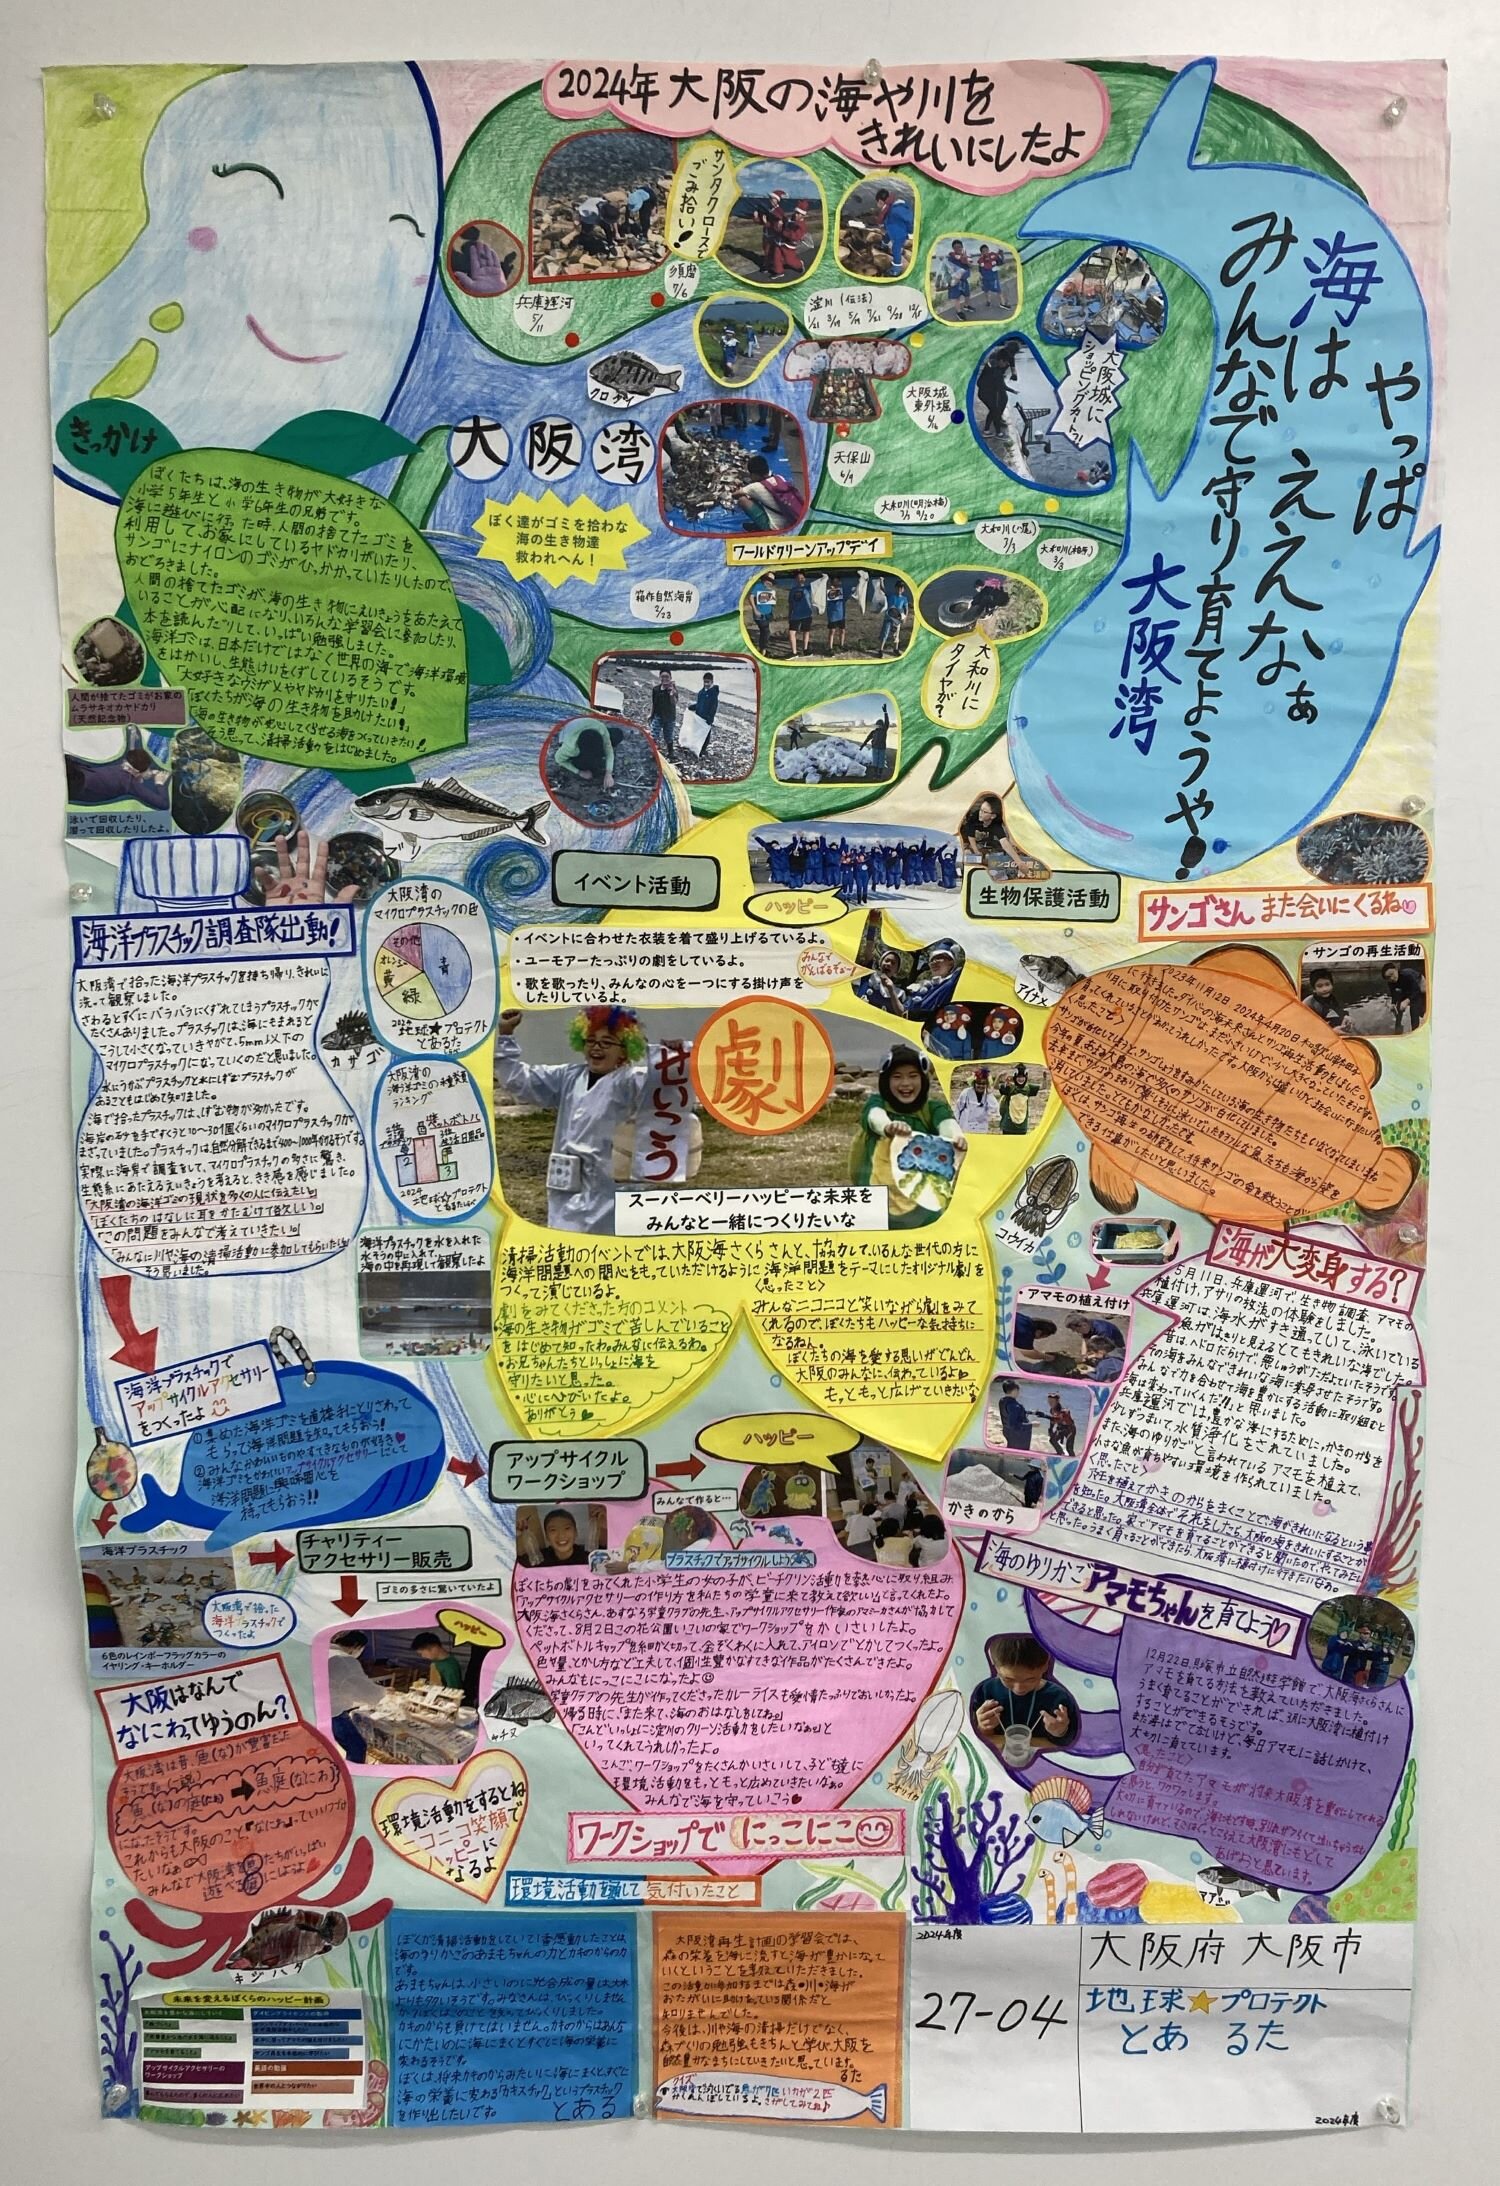 2024年 大阪の海や川を
きれいにしたよ
やっぱ
海は ええなぁ
みんなで守り育てようや!
大阪湾
サンタクロースで
ごみ拾い!
須磨
7/6
兵庫運河
5/11
淀川(伝法)
大阪城に
ショッピングカート?!
大阪城
東外堀
6/16
天保山
6/9
クロダイ
大阪湾
ぼく達がゴミを拾わな
海の生き物達
救われへん!
ワールドクリーンアップデイ
大和川(明治橋)
大和川(八尾)
3/3
大和川(柏原)
3/3
箱作自然海岸
2/23
大和川に
タイヤが?
きっかけ
ぼくたちは、海の生き物が大好きな
小学5年生と小学6年生の兄弟です。
海に遊びに行った時、人間の捨てたゴミを
利用して、お家にしているヤドカリがいたり、
サンゴにナイロンのゴミがひっかかっていたりしたので、
おどろきました。
人間の捨てたゴミが、海の生き物にえいきょうをあたえて
いることが心配になり、いろんな学習会に参加したり、
本を読んだりして、いっぱい勉強しました。
海洋ゴミは、日本だけではなく世界の海で海洋環境
をはかいし、生態けいをくずしているそうです。
「大好きなウミガメやヤドカリを守りたい!」
「ぼくたちが海の生き物を助けたい!」
「海の生き物が安心してくらせる海をつくっていきたい!」
そう思って、清掃活動をはじめました。
人間が捨てたゴミがお家の
ムラサキオカヤドカリ
(天然記念物)
泳いで回収したり、
潜って回収したりしたよ。
ブリ
海洋プラスチック調査隊出動!
大阪湾で拾った海洋プラスチックを持ち帰り、きれいに
洗って観察しました。
さわるとすぐにバラバラにくずれてしまうプラスチックが
たくさんありました。プラスチックは、海にもまれると
こうして小さくなっていきやがて、5mm以下の
マイクロプラスチックになっていくのだと思いました。
水にうかぶプラスチックと水にしずむプラスチックが
あることもはじめて知りました。
海で拾ったプラスチックは、しずむ物が多かったです。
海岸の砂を手ですくうと10~30個ぐらいのマイクロプラスチックが
まざっていました。プラスチックは、自然分解できるまで400~1000年かかるそうです。
実際に海岸で調査をして、マイクロプラスチックの多さに驚き、
生態系にあたえるえいきょうを考えると、きき感を感じました。
「大阪湾の海洋ゴミの現状を多くの人に伝えたい。」
「ぼくたちのはなしに耳をかたむけて欲しい。」
「この問題をみんなで考えていきたい。」
「みんなに川や海の清掃活動に参加してもらいたい」
そう思いました。
大阪湾の
マイクロプラスチックの色
その他
オレンジ
黄
緑
青
2024
地球★プロテクト
とあるた
カサゴ
大阪湾の
海洋ゴミの種類
ランキング
ペットボトル
生活日用品
2
1
3
2024
地球★プロテクト
とあるた
海洋プラスチックを水を入れた
水そうの中に入れて、
海の中を再現して観察したよ
イベント活動
ハッピー
・イベントに合わせた衣装を着て盛り上げるているよ。
・ユーモアーたっぷりの劇をしているよ。
・歌を歌ったり、みんなの心を一つにする掛け声を
したりしているよ。
みんなで
がんばるぞぉ~
劇
せいこう
スーパーベリーハッピーな未来を
みんなと一緒につくりたいな
清掃活動のイベントでは、大阪海さくらさんと、協力して、いろんな世代の方に
海洋問題への関心をもっていただけるように海洋問題をテーマにしたオリジナル劇を
つくって演じているよ。
劇をみてくださった方のコメント
・海の生き物がゴミで苦しんでいること
をはじめて知ったわ。みんなに伝えるわ。
・お兄ちゃんたちといっしょに海を
守りたいと思った。
・心にへびいたよ。
ありがとう
<思ったこと>
みんなニコニコと笑いながら劇をみて
くれるので、ぼくたちもハッピーな気持ちに
なるねん。
ぼくたちの海を愛する思いがどんどん
大阪のみんなに、伝わっているよ
もっともっと広げていきたいな
生物保護活動
サンゴさん また会いにくるね
・サンゴの再生活動
アイナメ
コウイカ
・アマモの植え付け
かきのから
海が大変身する?
5月11日、兵庫運河で、生き物調査、アマモの
植付け、アサリの放流の体験をしました。
兵庫運河は、海水がすき通っていて、泳いでいる
魚がはっきりと見えるとてもきれいな海でした。
昔は、ヘドロだらけで、悪しゅうがただよっていたそうです。
その海をみんなできれいな海に変身させたそうです。
みんなで力を合わせて海を豊かにする活動に取り組むと
海は変わっていくんだ!!と思いました。
兵庫運河では、豊かな海にするために、かきのからを
少しずつまいて、水質浄化をされていました。
また、海のゆりかごと言われているアマモを植えて、
小さな魚が育ちやすい環境を作られていました。
<思ったこと>
海のゆりかごアマモちゃんを育てよう
12月22日、貝塚市立自然遊学館で、大阪海さくらさんに
アマモを育てる方法を教えていただきました。
うまく育てることができれば、3月に大阪湾に植付け
することができるそうです。
まだ芽はでてないけど、毎日アマモに話しかけて、
大切に育てています。
<思ったこと>
自分が育てたアマモが将来大阪湾を豊かにしてくれる
と思うと、ワクワクします。
あげようと思っています。
海洋プラスチックで
アップサイクルアクセサリー
をつくったよ
①集めた海洋ゴミを直接手にとりさわって
もらって海洋問題を知ってもらおう!
②みんなかわいいものやすてきなものが好き
海洋ゴミをかわいいアップサイクルアクセサリーにして
海洋問題に興味関心を
持ってもらおう!!
海洋プラスチック
大阪湾で拾った
海洋プラスチックで
つくったよ
6色のレインボーフラッグカラーの
イヤリング・キーホルダー
チャリティー
アクセサリー販売
ゴミの多さに驚いていたよ
ハッピー
アップサイクル
ワークショップ
ハッピー
みんなで作ると…
プラスチックでアップサイクルしよう
ぼくたちの劇をみてくれた小学生の女の子が、ビーチクリン活動を熱心に取り組み
「アップサイクルアクセサリーの作り方を私たちの学童に来て教えて欲しい」と言ってくれたよ。
大阪海さくらさん、あすなろ学童クラブの先生、アップサイクルアクセサリー作家のアミーカさんが協力して
くださって、8月2日この花公園いこいの家でワークショップをかいさいしたよ。
ペットボトルキャップを細かく切って、金ぞくわくに入れて、アイロンでとかしてつくったよ。
色や量、とかし方など工夫して、個性豊かなすてきな作品がたくさんできたよ。
みんなもにっこにこになったよ
学童クラブの先生が作ってくださったカレーライスも愛情たっぷりでおいしかったよ。
帰る時に、「また来て、海のおはなしをしてね」
「こんど、いっしょに淀川のクリーン活動をしたいなぁ」と
いってくれてうれしかったよ。
こんご、ワークショップをたくさんかいさいして、子ども達に
環境活動をもっともっと広めていきたいなぁ。
みんなで海を守っていこう
ワークショップで にっこにこ
アオリイカ
大阪はなんで
なにわってゆうのん?
大阪湾は昔、魚(な)が豊富だった
そうです。(一説)
魚(な)の庭(にわ)→魚庭(なにわ)
になったそうです。
これからも大阪のこと『なにわ』っていいつづけ
たいなぁ
みんなで大阪湾を魚たちがいっぱい
遊べる庭にしようよ
環境活動をするとね
ニコニコ笑顔で
ハッピーに
なるよ
環境活動を通して気付いたこと
キジハタ
未来を変えるぼくらのハッピー計画
アップサイクルアクセサリーの
ワークショップ
英語の勉強
世界中の人とつながりたい
ぼくが清掃活動をしていて1番感動したことは、
海のゆりかごのあまもちゃんの力とカキのからの力
です。
あまもちゃんは、小さいのに光合成の量は大木
よりも多いそうです。みなさんは、びっくりしません
か?ぼくは、このことを知ってびっくりしました。
カキのからも負けてはいません。カキのからはあんな
にかたいのに海にまくとすぐに海の栄養に
変わるそうです。
ぼくは、将来カキのからみたいに海にまくとすぐに
海の栄養に変わる「カキスチック」というプラスチック
を作り出したいです。
とある
大阪湾再生計画の学習会では、
森の栄養を海に流すと海が豊かになって
いくということを教えていただきました。
この活動に参加するまでは森・川・海が
おたがいに助け合っている関係だと
知りませんでした。
今後は、川や海の清掃だけでなく、
森づくりの勉強もきちんと学び、大阪を
自然豊かなまちにしていきたいと思っています。
るた
クイズ
大阪湾で泳いでいる魚が7匹いカが2匹
かくれんぼしているよ。さがしてみてね
2024年度
27-04
大阪府 大阪市
地球★プロテクト
とあ るた
2024年度